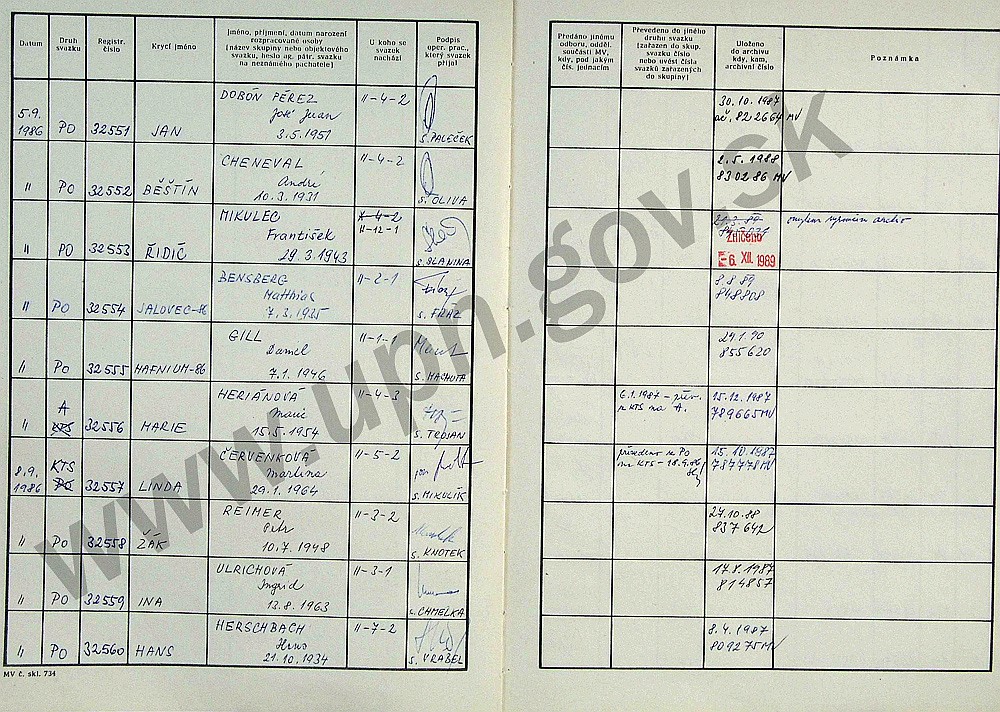 Datum
Druh svazku
Registr. číslo
Krycí jméno
Jméno, příjmení, datum narození
rozpracované osoby
(název skupiny nebo objektového
svazku, heslo ag. pátr. svazku
na neznámého pachatele)
U koho se
svazek
nachází
Podpis
oper. prac.,
který svazek
přijal
Předáno jinému
odboru, odděl.
součásti MV,
kdy, pod jakým
čís. jednacím
Převedeno do jiného
druhu svazku
(zařazen do skup.
svazku číslo
nebo uvést čísla
svazků zařazených
do skupiny)
Uloženo
do archivu
kdy, kam,
archivní číslo
Poznámka
5.9.
1986 PO 32551 JAN
DOBÓN PÉREZ
José Juan
3.5.1951
II-4-2
S. PALEČEK
30.10.1987
ač. 822664 MV
II PO 32552 BĚŠTÍN
CHENEVAL
André
10.3.1931
II-4-2
S. OLIVA
2.5.1988
830286 MV
II PO 32553 ŘIDIČ
MIKULEC
František
29.3.1943
II-4-2
II-12-1
S. BLANINA
ZNIČENO
6. XII. 1989
omylem
II PO 32554 JALOVEC-86
BENSBERG
Matthias
7.3.1935
II-2-1
8.8.89
848808
II PO 32555 HAFNIUM-86
GILL
Daniel
7.1.1946
II-1-
S. MACHUTA
29.1.90
855620
A
II KTS 32556 MARIE
HERIÁNOVÁ
Marie
15.5.1954
II-4-3
S. TROJAN
6.1.1987 - přev.
z KTS na A.
15.12.1987
789665 MV
8.9. KTS
1986 PO 32557 LINDA
ČERVENKOVÁ
Martina
29.1.1964
II-5-2
S. MIKULÍK
převedeno z PO
na KTS - 18.9.86
15.10.1987
787778 MV
II PO 32558 ŽÁK
REIMER
Petr
10.7.1948
II-3-2
S. KNOTEK
27.10.88
837642
II PO 32559 INA
ULRICHOVÁ
Ingrid
13.8.1963
II-3-1
S. CHMELKA
17.8.1987
814857
II PO 32560 HANS
HERSCHBACH
Hans
21.10.1934
II-7-2
S. VRÁBEL
8.4.1987
809275 MV
MV č. skl. 734
www.upn.gov.sk